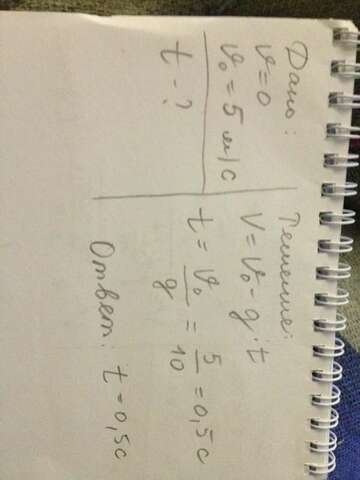 Дано:
v=0
v₀=5 м/с
t-?
Решение:
V=v₀-g·t
t=v₀/g=5/10=0,5с
Ответ: t=0,5с